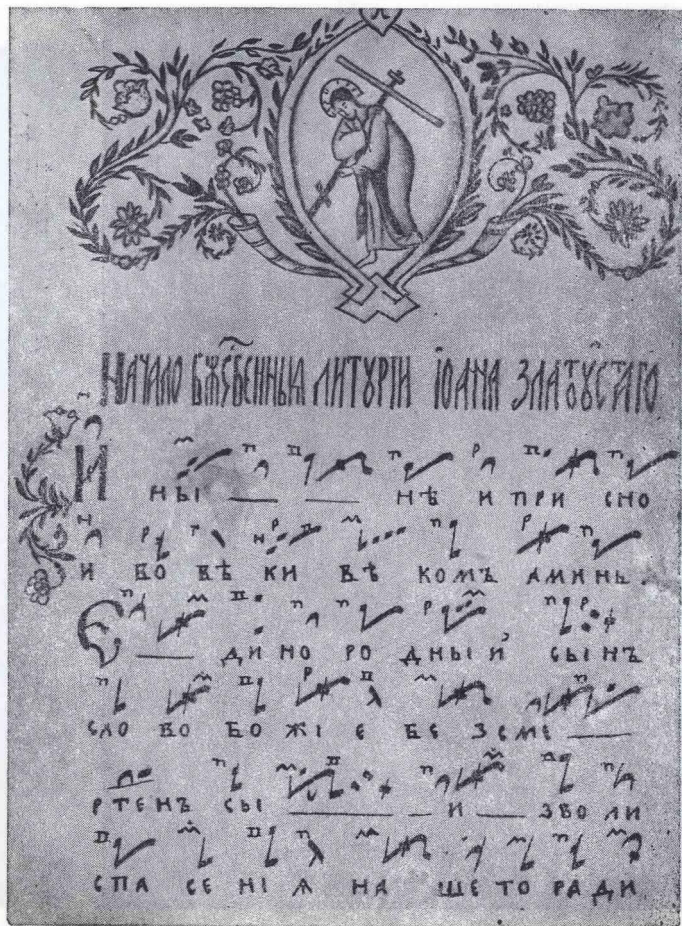 НАЧАЛО БЖЕСТВЕННЫЯ ЛИТУРГІИ ІОАНА ЗЛАТОУСТАГО
И НЫ — — НѢ И ПРИ СНО
И ВО ВѢ КИ ВѢ КОМЪ АМИНЬ.
Є — ДИ НО РО ДНЫЙ СЫНЪ
СЛО ВО БО ЖІ Є БЕ ЗСМЕ —
РТЕНЪ СЫ — — И — ЗВО ЛИ
СПА СЕ НІ Ѧ НА ШЕ ГО РА ДИ